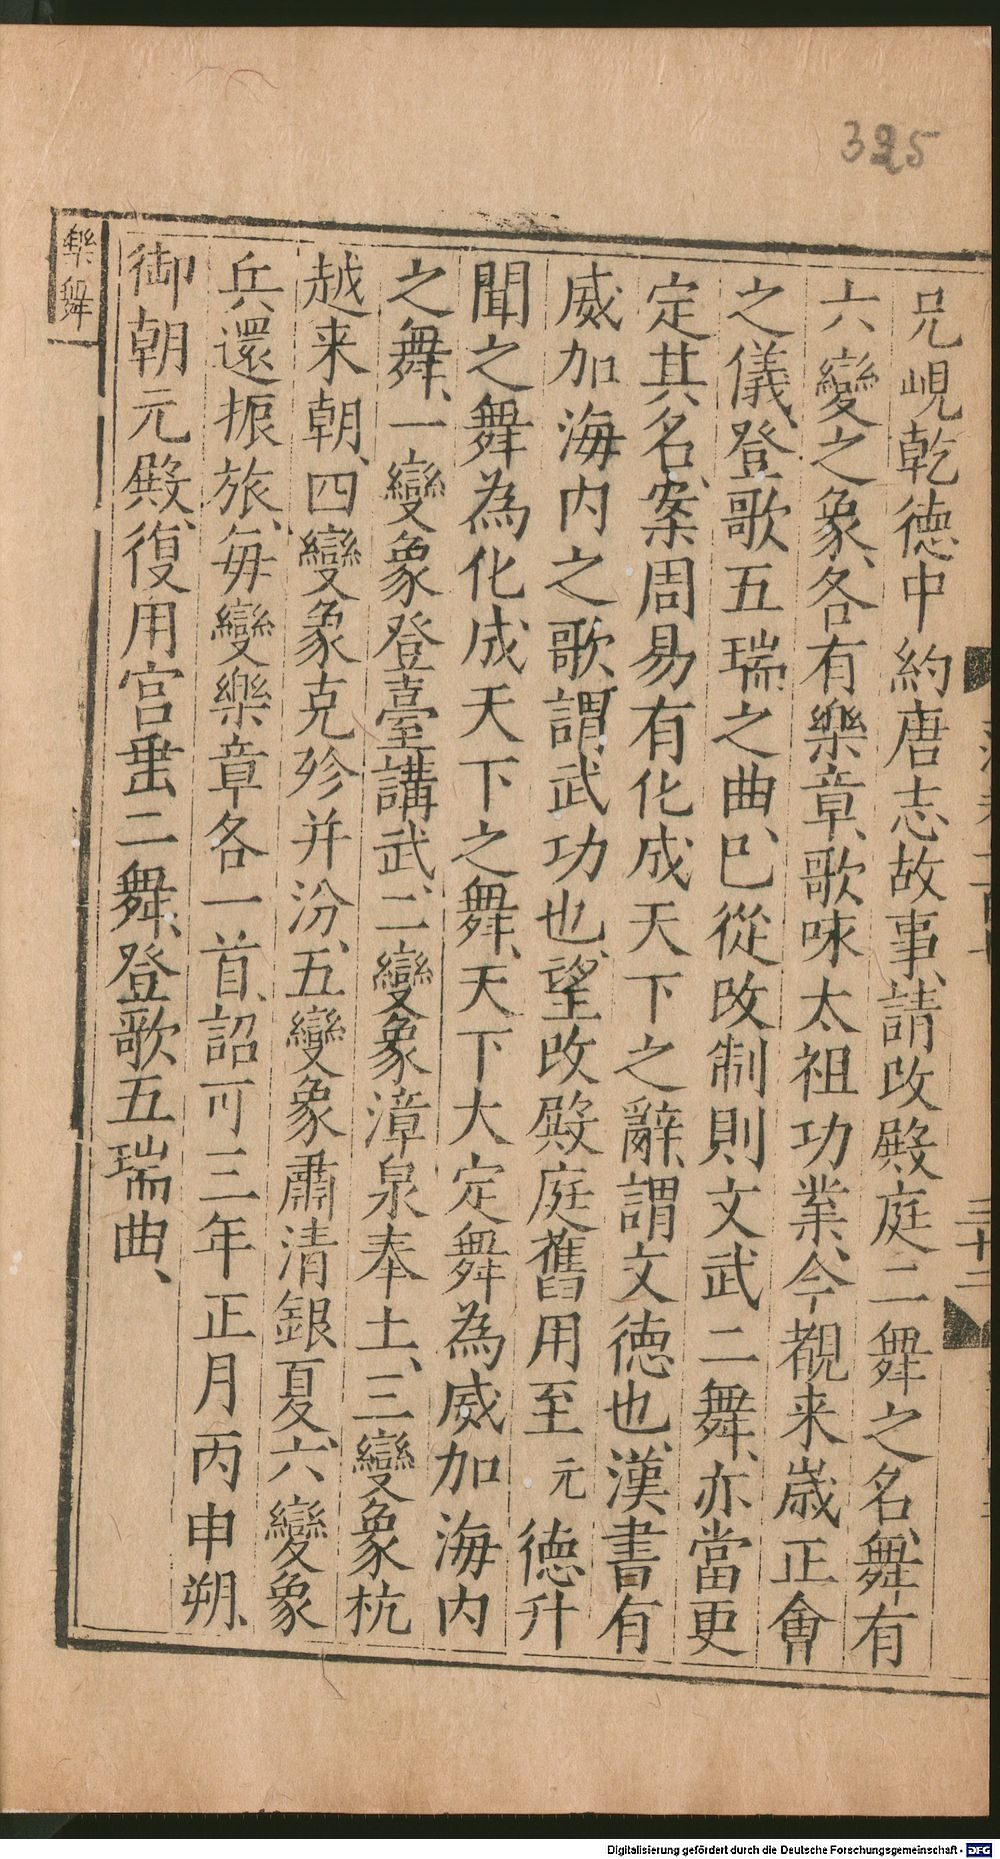 325
樂舞
兄峴乾德中約唐志故事、請改殿庭二舞之名、舞有
六變之象、各有樂章、歌咏太祖功業、今覩来歲正會
之儀、登歌五瑞之曲、已從改制、則文武二舞、亦當更
定其名、案周易有化成天下之辭、謂文德也、漢書有
威加海内之歌、謂武功也、望改殿庭舊用至元德升
聞之舞為化成天下之舞、天下大定舞為威加海内
之舞、一變象登臺講武、二變象漳泉奉土、三變象杭
越来朝、四變象克殄并汾、五變象肅清銀夏、六變象
兵還振旅、每變樂章各一首、詔可三年正月丙申朔、
御朝元殿、復用宮垂二舞、登歌五瑞曲、
三十二
Digitalisierung gefördert durch die Deutsche Forschungsgemeinschaft - DFG